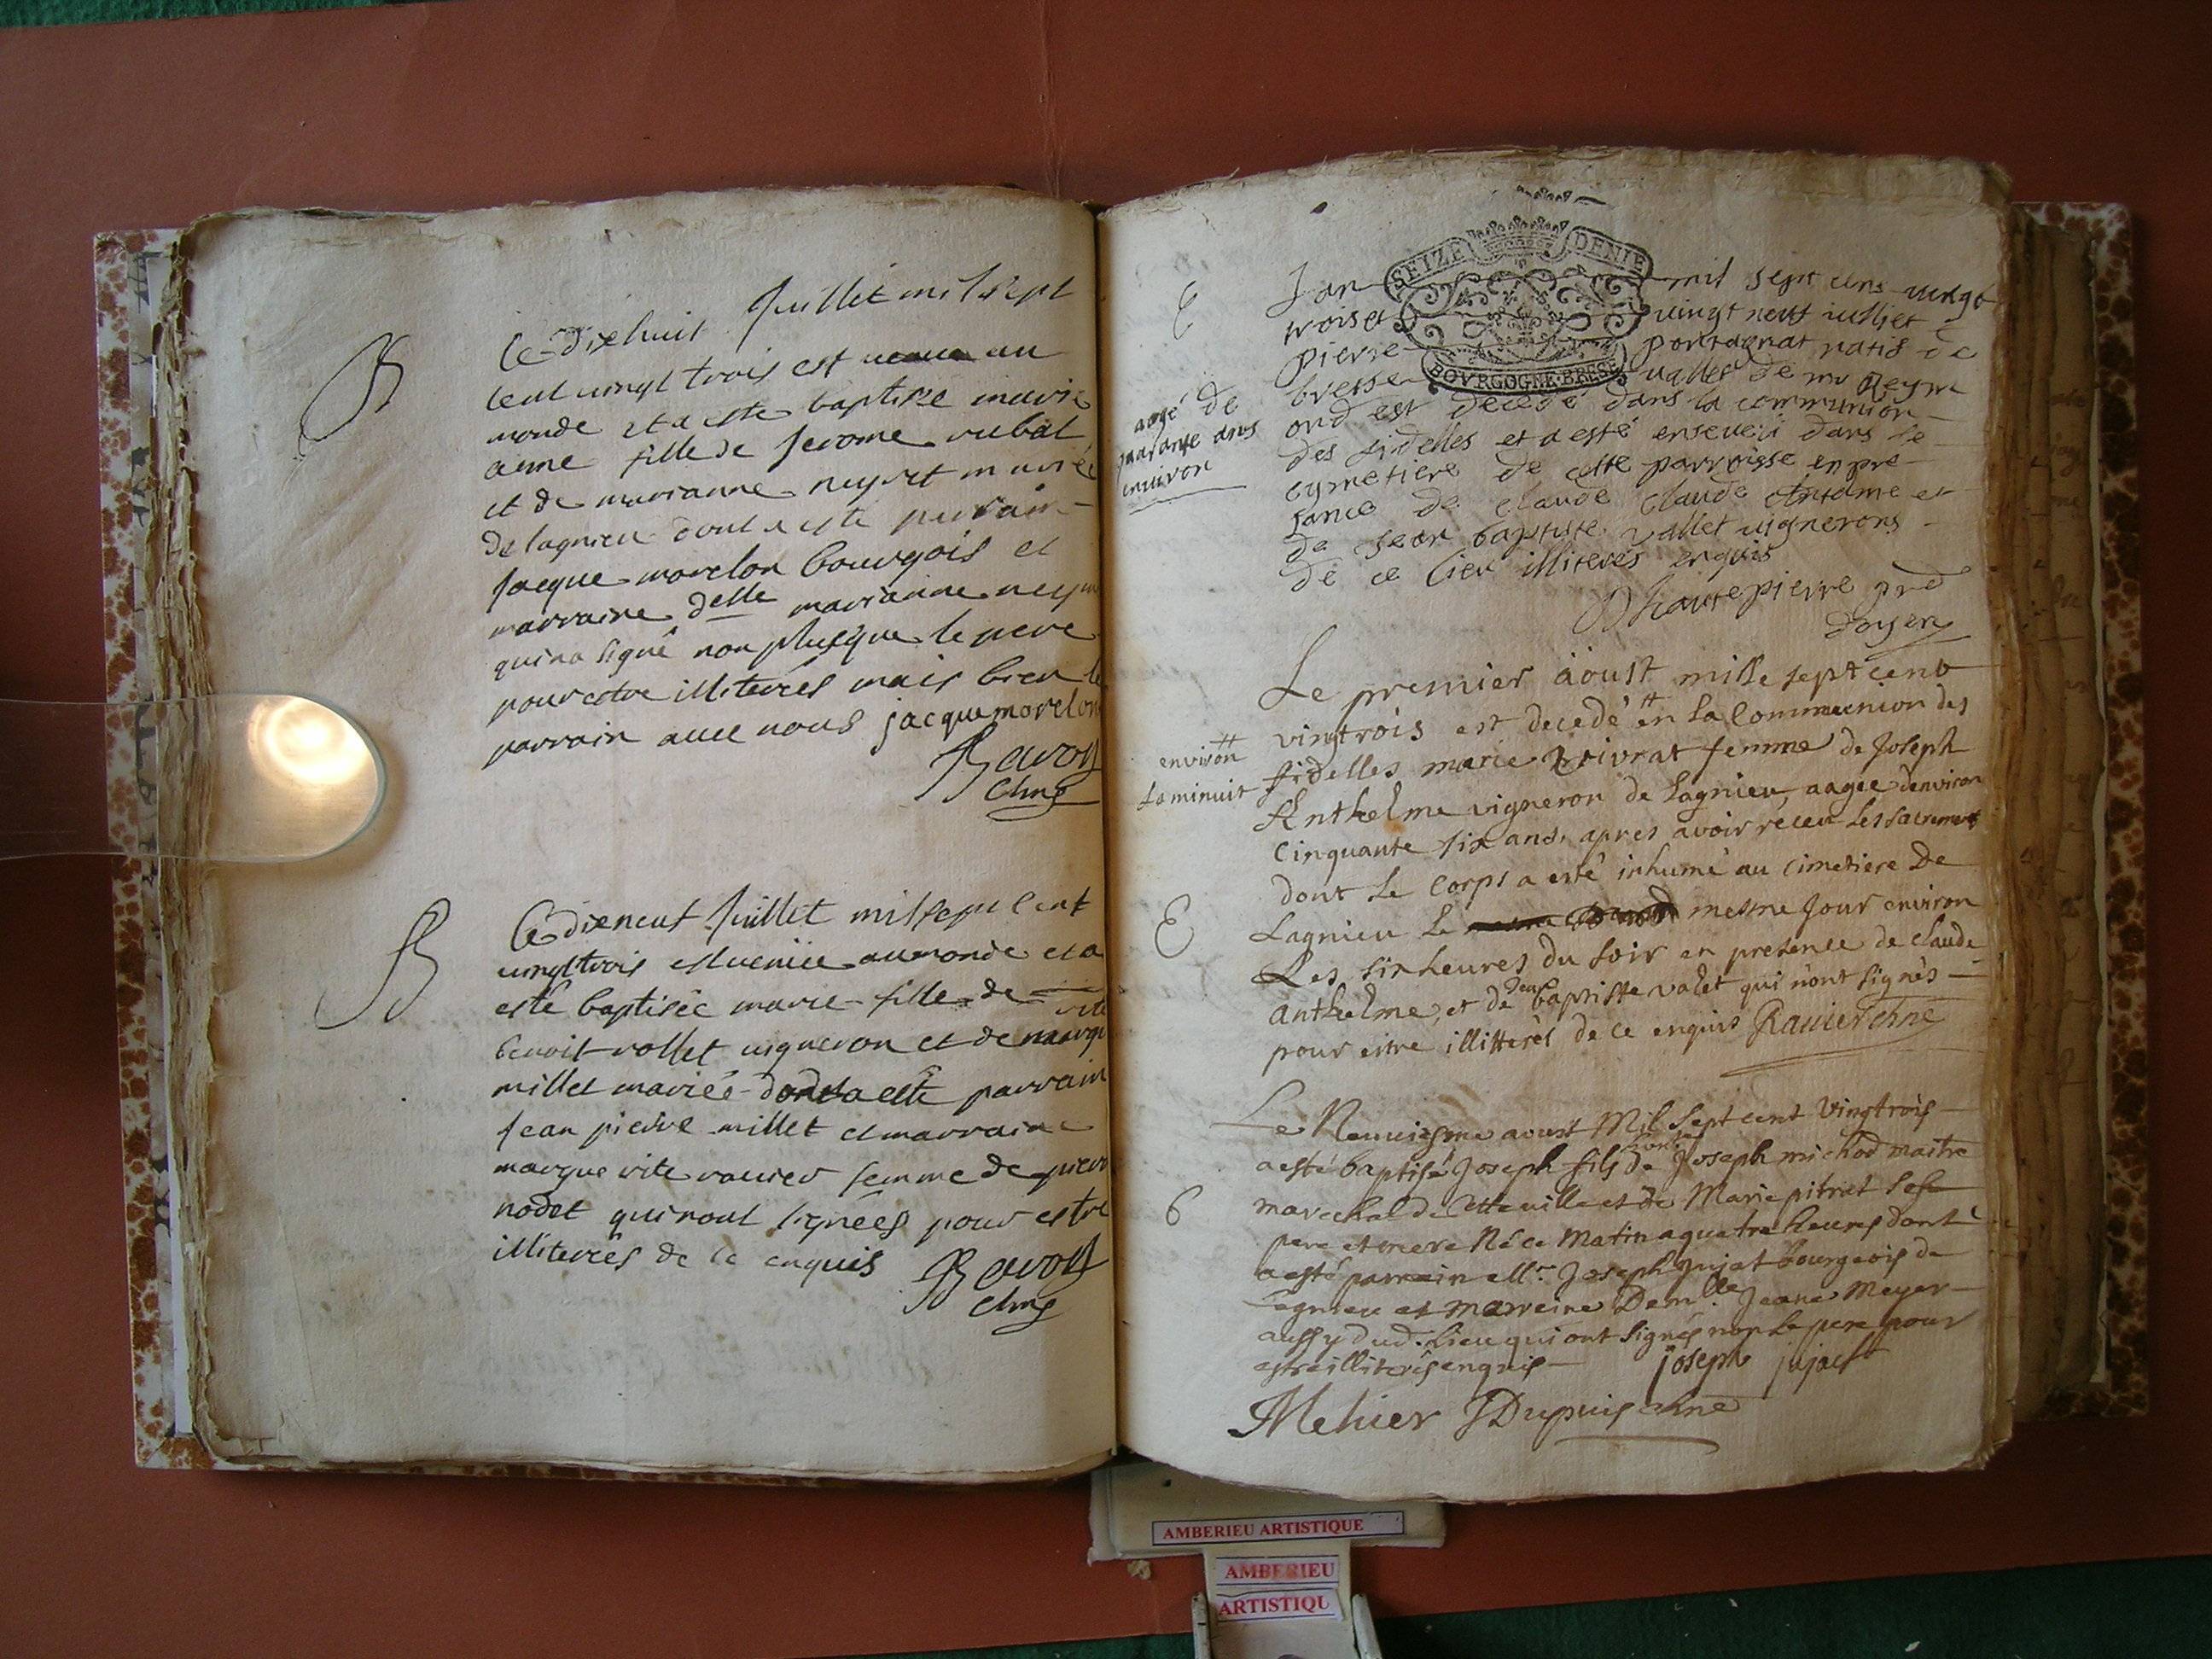 Le dixhuit Juillet mil sept
cent vingt trois est au
monde et a este baptisée marie
anne fille de Jerome rubat
et de marianne neyret mariés
de lagnieu dont a este parrain
Jacque morelon bourgois et
marraine delle marianne
qui na signé non plusque le pere
pour estre illiterés mais bien le
parrain avec nous jacque morelon
B
Le dixneuf Juillet mil sept cent
vingt trois est venüe au monde et a
esté baptisée marie fille de
benoit rollet vigneron et de margu
rite
millet mariés dont a esté parrain
Jean pierre millet et marraine
marguerite ravier femme de pierre
nodet qui nont signées pour estre
illiterées de ce enquis
B
SEIZE DENIE
BOVRGOGNE·BRESE
E
Lan mil sept cens vingt
trois et vingt neuf iulliet
pierre portagnat natif de
bresse vallet de mr Reym
ond est decedé dans la communion
des fidelles et a esté enseveli dans le
cymetiere de cette parroisse en pre
sance de claude claude Antelme et
de Jean baptiste vallet vignerons
de ce lieu illiterés enquis
Dhautepierre prd
doyen
aagé de
quarante ans
environ
Le premier äoust mille sept cent
vingtrois est decedé # en la Communion des
fidelles marie privrat femme de Joseph
Anthelme vigneron de Lagnieu, aagée denviron
Cinquante six ans, apres avoir receu les sacrements
dont le Corps a esté inhumé au Cimetiere De
Lagnieu le mesme Jour environ
Les six heures du soir en presence de claude
anthelme, et de jean baptiste valet qui n'ont signés
pour estre illitterés de ce enquis Ravier chne
#
environ
La minuit
E
Le Neuviesme aoust Mil Sept cent Vingtrois
a esté baptisé Joseph fils de Joseph michod maitre
marechal de Cette ville et de Marie pitrat Ses
pere et mere Né ce Matin a quatre heures dont
a esté parrein Joseph jujat bourgeois de
Lagnieu et marreine Demlle Jeane Meyer
aussy dud. Lieu qui ont signés non le pere pour
estre illiterés enquis joseph jujact
Mehier JDupuis chne
6
AMBERIEU ARTISTIQUE
AMBERIEU
ARTISTIQU